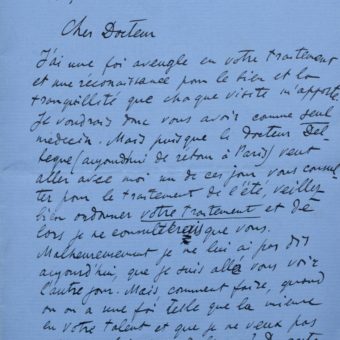 Cher Docteur
J'ai une foi aveugle en votre traitement
et une reconaissance pour le bien et la
tranquillité que chaque visite m'apporte.
Je voudrais donc vous avoir comme seul
médecin. Mais puisque le Docteur Del-
teque (aujourd'hui de retour à Paris) veut
aller avec moi un de ces jours vous consul-
ter pour le traitement de l'été, veuillez
bien ordonner votre traitement et dès
lors je ne consulterais que vous.
Malheureusement je ne lui ai pas dit
aujourd'hui, que je suis allée vous voir
l'autre jour. Mais, comment faire, quand
on a une foi telle que la mienne
en votre talent et que je ne veux pas